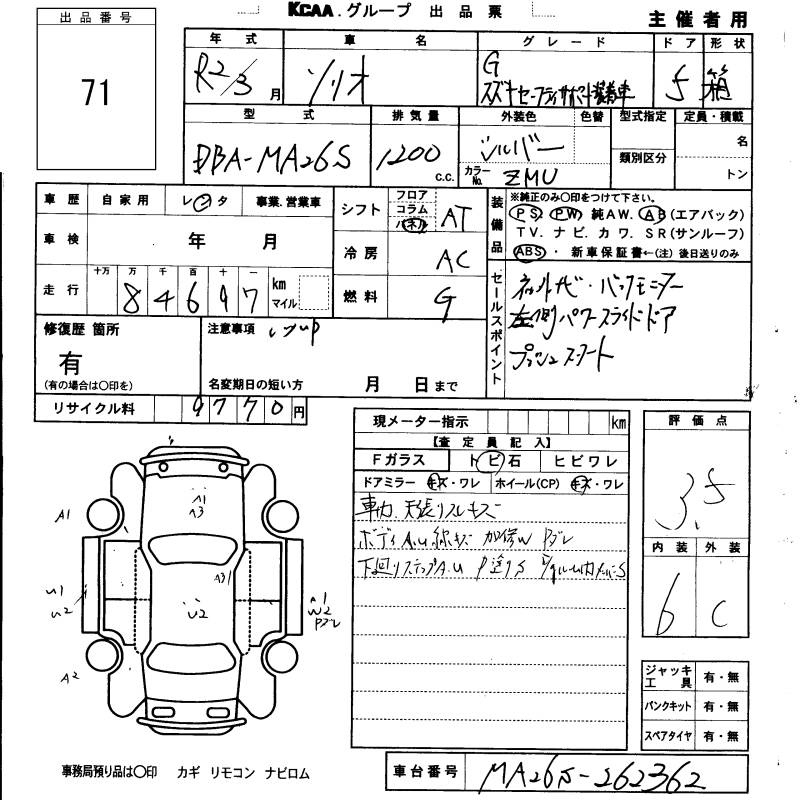 KCAA.グループ 出品票
主催者用
出品番号
71
年式 車名 グレード ドア 形状
R2/3月 ソリオ G 5 箱
スズキセーフティサポート装着車
型式 排気量 外装色 色替 型式指定 定員・積載
DBA-MA26S 1200 c.c. シルバー 名
カラーNo. ZMU 類別区分 トン
車歴 自家用 レンタ 事業.営業車
シフト フロア コラム パネル AT
装備品 ※純正のみ〇印をつけて下さい。
PS PW 純AW. AB(エアバック)
TV. ナビ. カワ. SR(サンルーフ)
ABS ・ 新車保証書←(注) 後日送りのみ
車検 年 月
冷房 AC
走行 十万 万 千 百 十 一
84697 km マイル
燃料 G
セールスポイント
バックモニター
左側パワースライドドア
プッシュスタート
修復歴 箇所
有
(有の場合は〇印を)
注意事項 レンUP
名変期日の短い方 月 日まで
リサイクル料 9770円
現メーター指示 km
【査定員記入】
Fガラス トビ石 ヒビワレ
ドアミラー キズ・ワレ ホイール(CP) キズ・ワレ
車内.天張リスレキズ
ボディA.U線キズ 加修W Pブレ
下回リステップA.U P塗りS
評価点
3.5
内装 外装
6 C
A1
A1
A3
A31
U1
U2
U2
A1
W2
Pブレ
A2
ジャッキ 工具 有・無
パンクキット 有・無
スペアタイヤ 有・無
事務局預り品は〇印 カギ リモコン ナビロム
車台番号 MA26S-262362